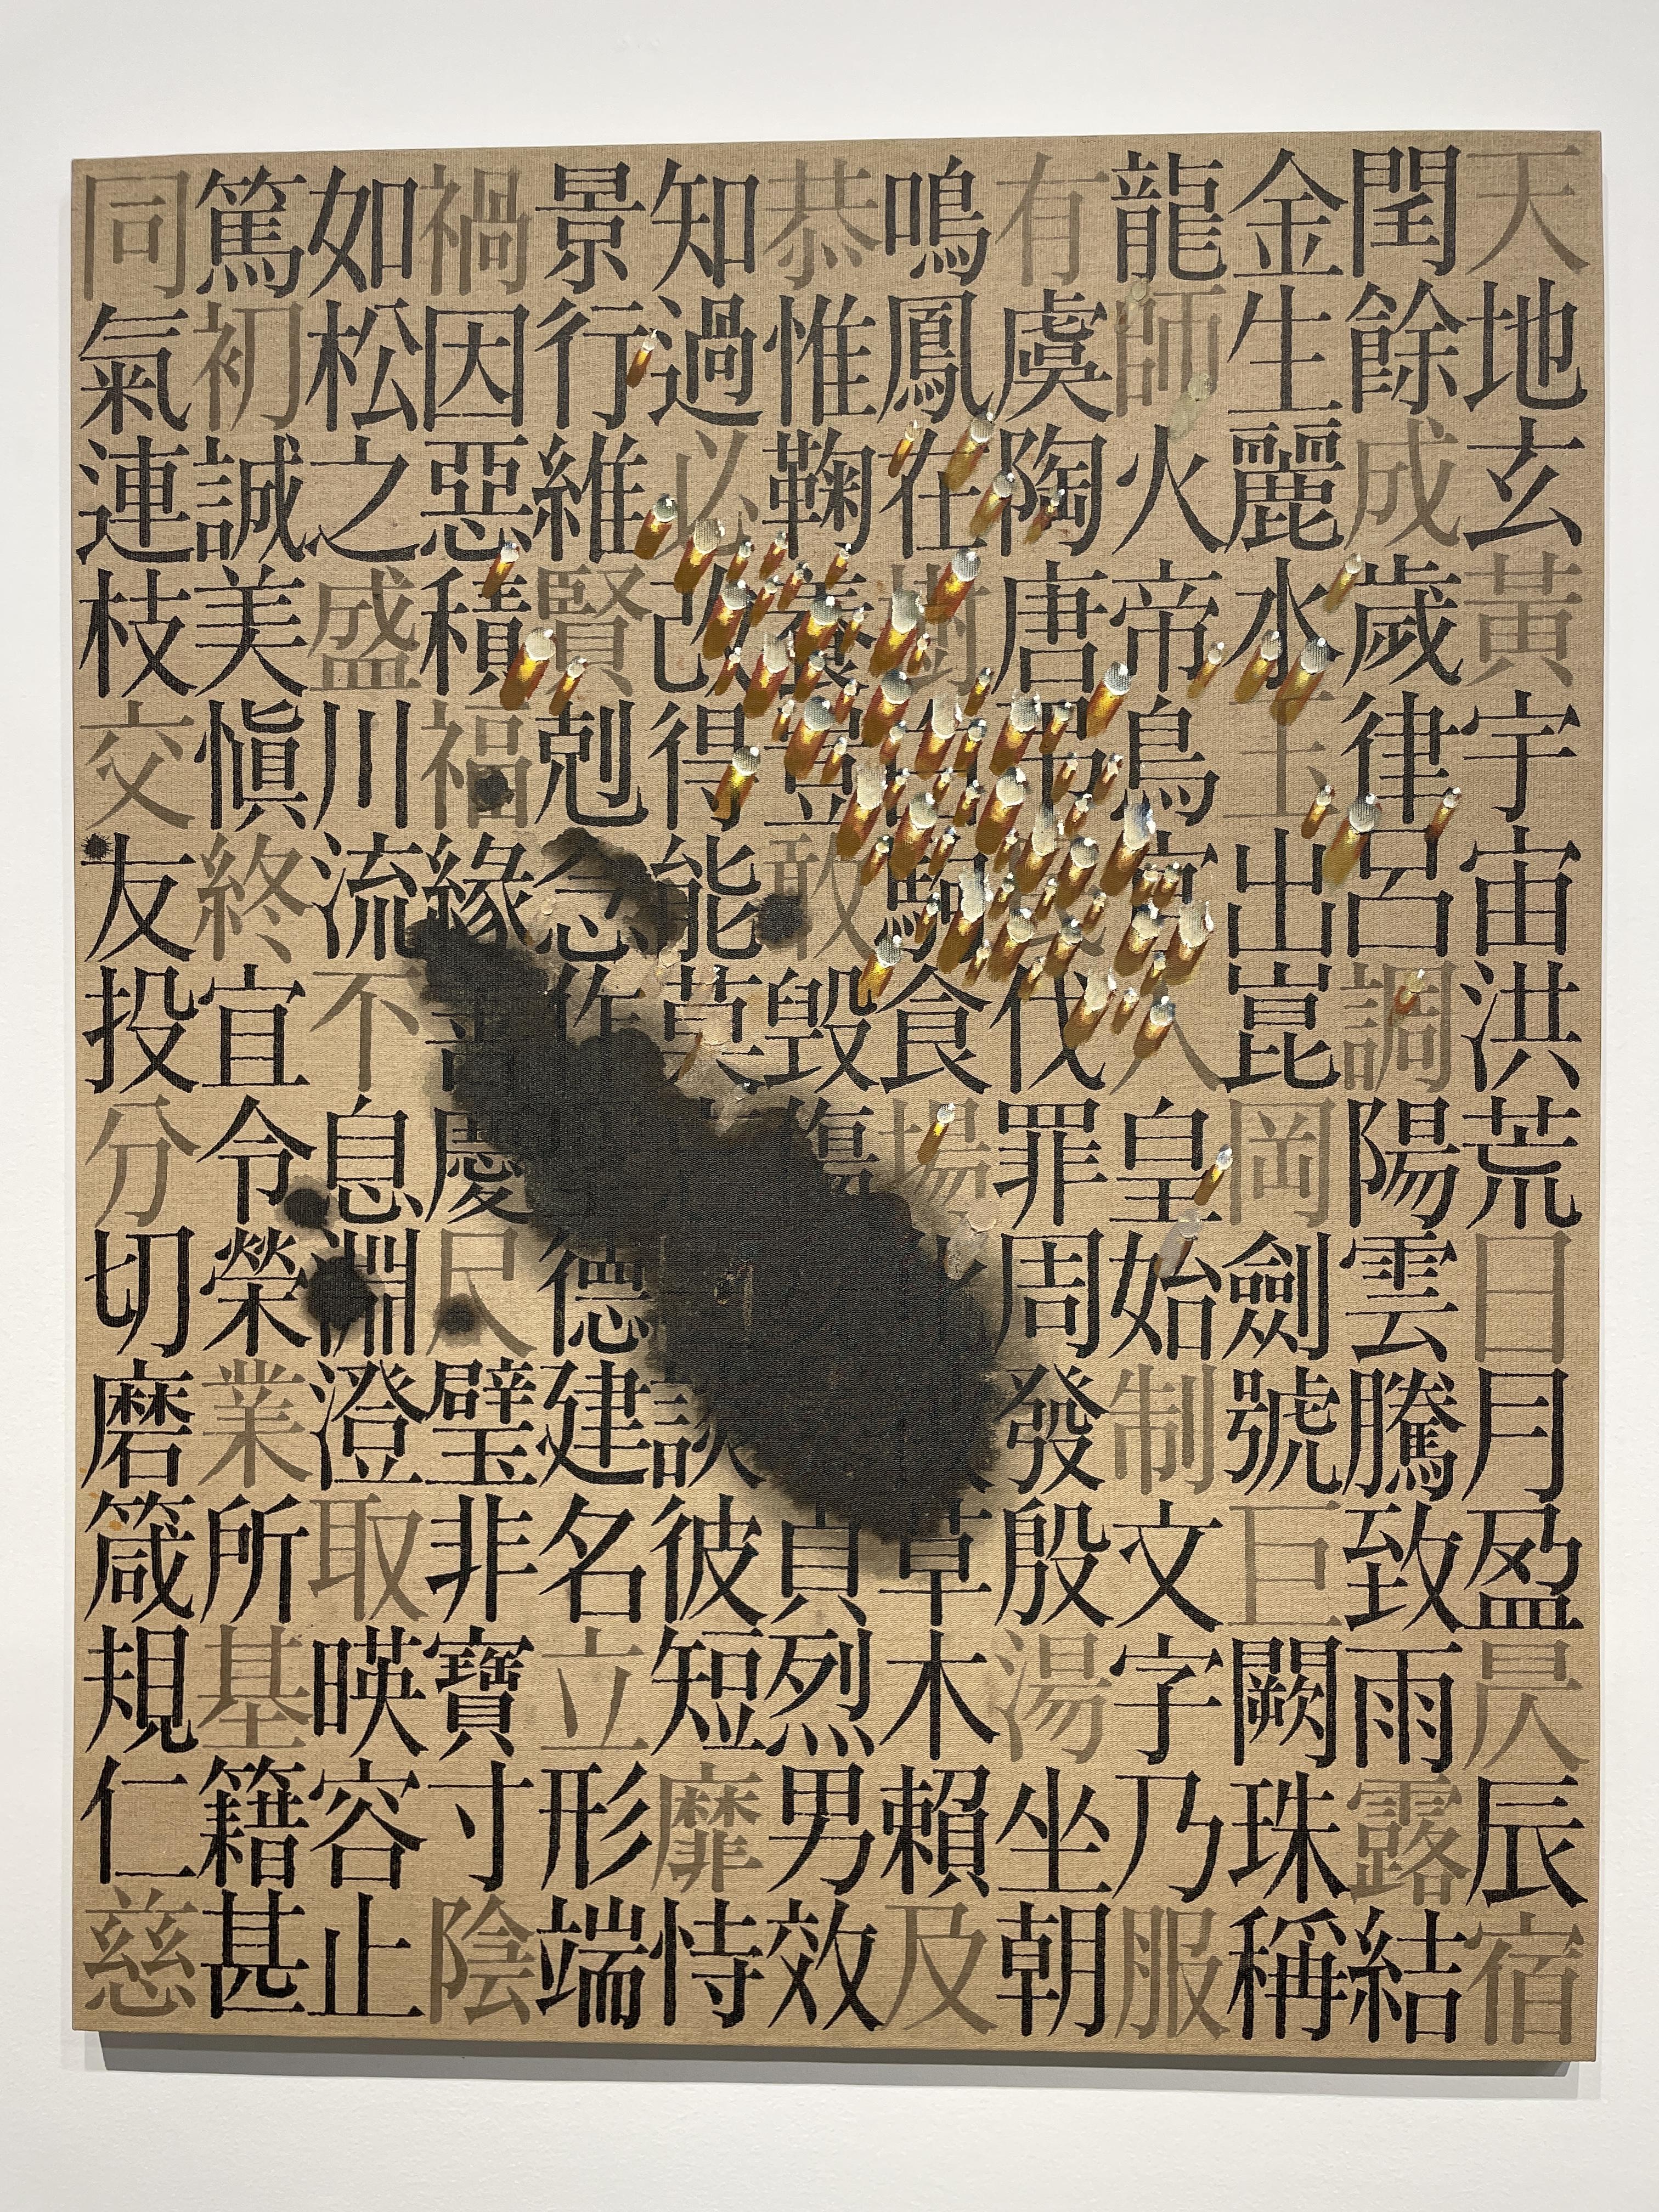 天地玄黃宇宙洪荒日月盈昃辰宿
閏餘成歲律呂調陽雲騰致雨露結
金生麗水玉出崑岡劍號巨闕珠稱
龍師火帝鳥官人皇始制文字乃服
有虞陶唐伐罪周發殷湯坐朝
鳴鳳在樹駒食場草木賴及
恭惟鞠養豈敢毁傷貞烈男效
知過必改得能莫談彼短靡恃
景行維賢剋念作德建名立形端
禍因惡積福緣善慶尺璧非寶寸陰
如松之盛川流不息淵澄取暎容止
篤初誠美愼終宜令榮業所基籍甚
同氣連枝交友投分切磨箴規仁慈